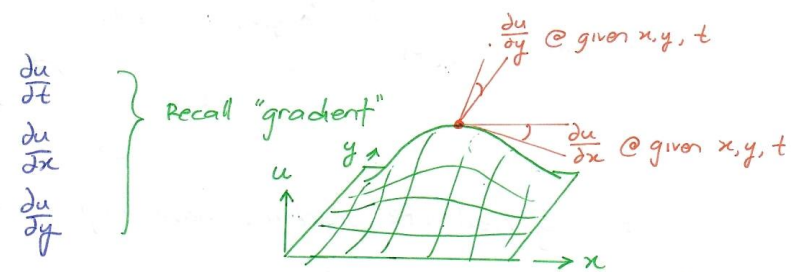 ∂u/∂t
∂u/∂x
∂u/∂y
Recall "gradient"
∂u/∂y @ given x, y, t
∂u/∂x @ given x, y, t
y
u
x